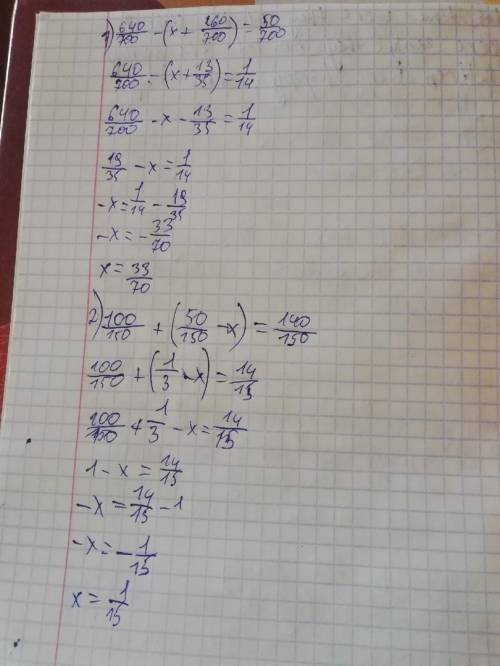 1) 640/700 - (x + 260/700) = 50/700
640/700 - (x + 13/35) = 1/14
640/700 - x - 13/35 = 1/14
19/35 - x = 1/14
-x = 1/14 - 19/35
-x = - 33/70
x = 33/70
2) 100/150 + (50/150 - x) = 140/150
100/150 + (1/3 - x) = 14/15
100/150 + 1/3 - x = 14/15
1 - x = 14/15
-x = 14/15 - 1
-x = - 1/15
x = 1/15